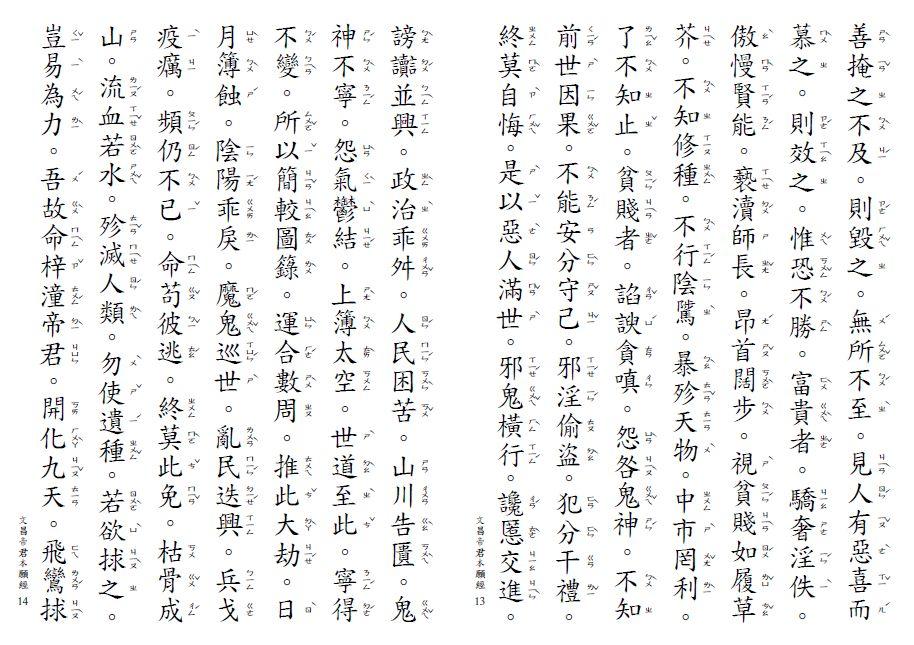 善掩之不及。則毀之。無所不至。見人有惡喜而
慕之。則效之。惟恐不勝。富貴者。驕奢淫佚。
傲慢賢能。褻瀆師長。昂首闊步。視貧賤如履草
芥。不知修種。不行陰騭。暴殄天物。中市罔利。
了不知止。貧賤者。諂諛貪嗔。怨咎鬼神。不知
前世因果。不能安分守己。邪淫偷盜。犯分干禮。
終莫自悔。是以惡人滿世。邪鬼橫行。讒慝交進。
文昌帝君本願經 13
謗讟並興。政治乖舛。人民困苦。山川告匱。鬼
神不寧。怨氣鬱結。上簿太空。世道至此。寧得
不變。所以簡較圖籙。運合數周。推此大劫。日
月簿蝕。陰陽乖戾。魔鬼巡世。亂民迭興。兵戈
疫癘。頻仍不已。命苟彼逃。終莫此免。枯骨成
山。流血若水。殄滅人類。勿使遺種。若欲捄之。
豈易為力。吾故命梓潼帝君。開化九天。飛鸞捄
文昌帝君本願經 14